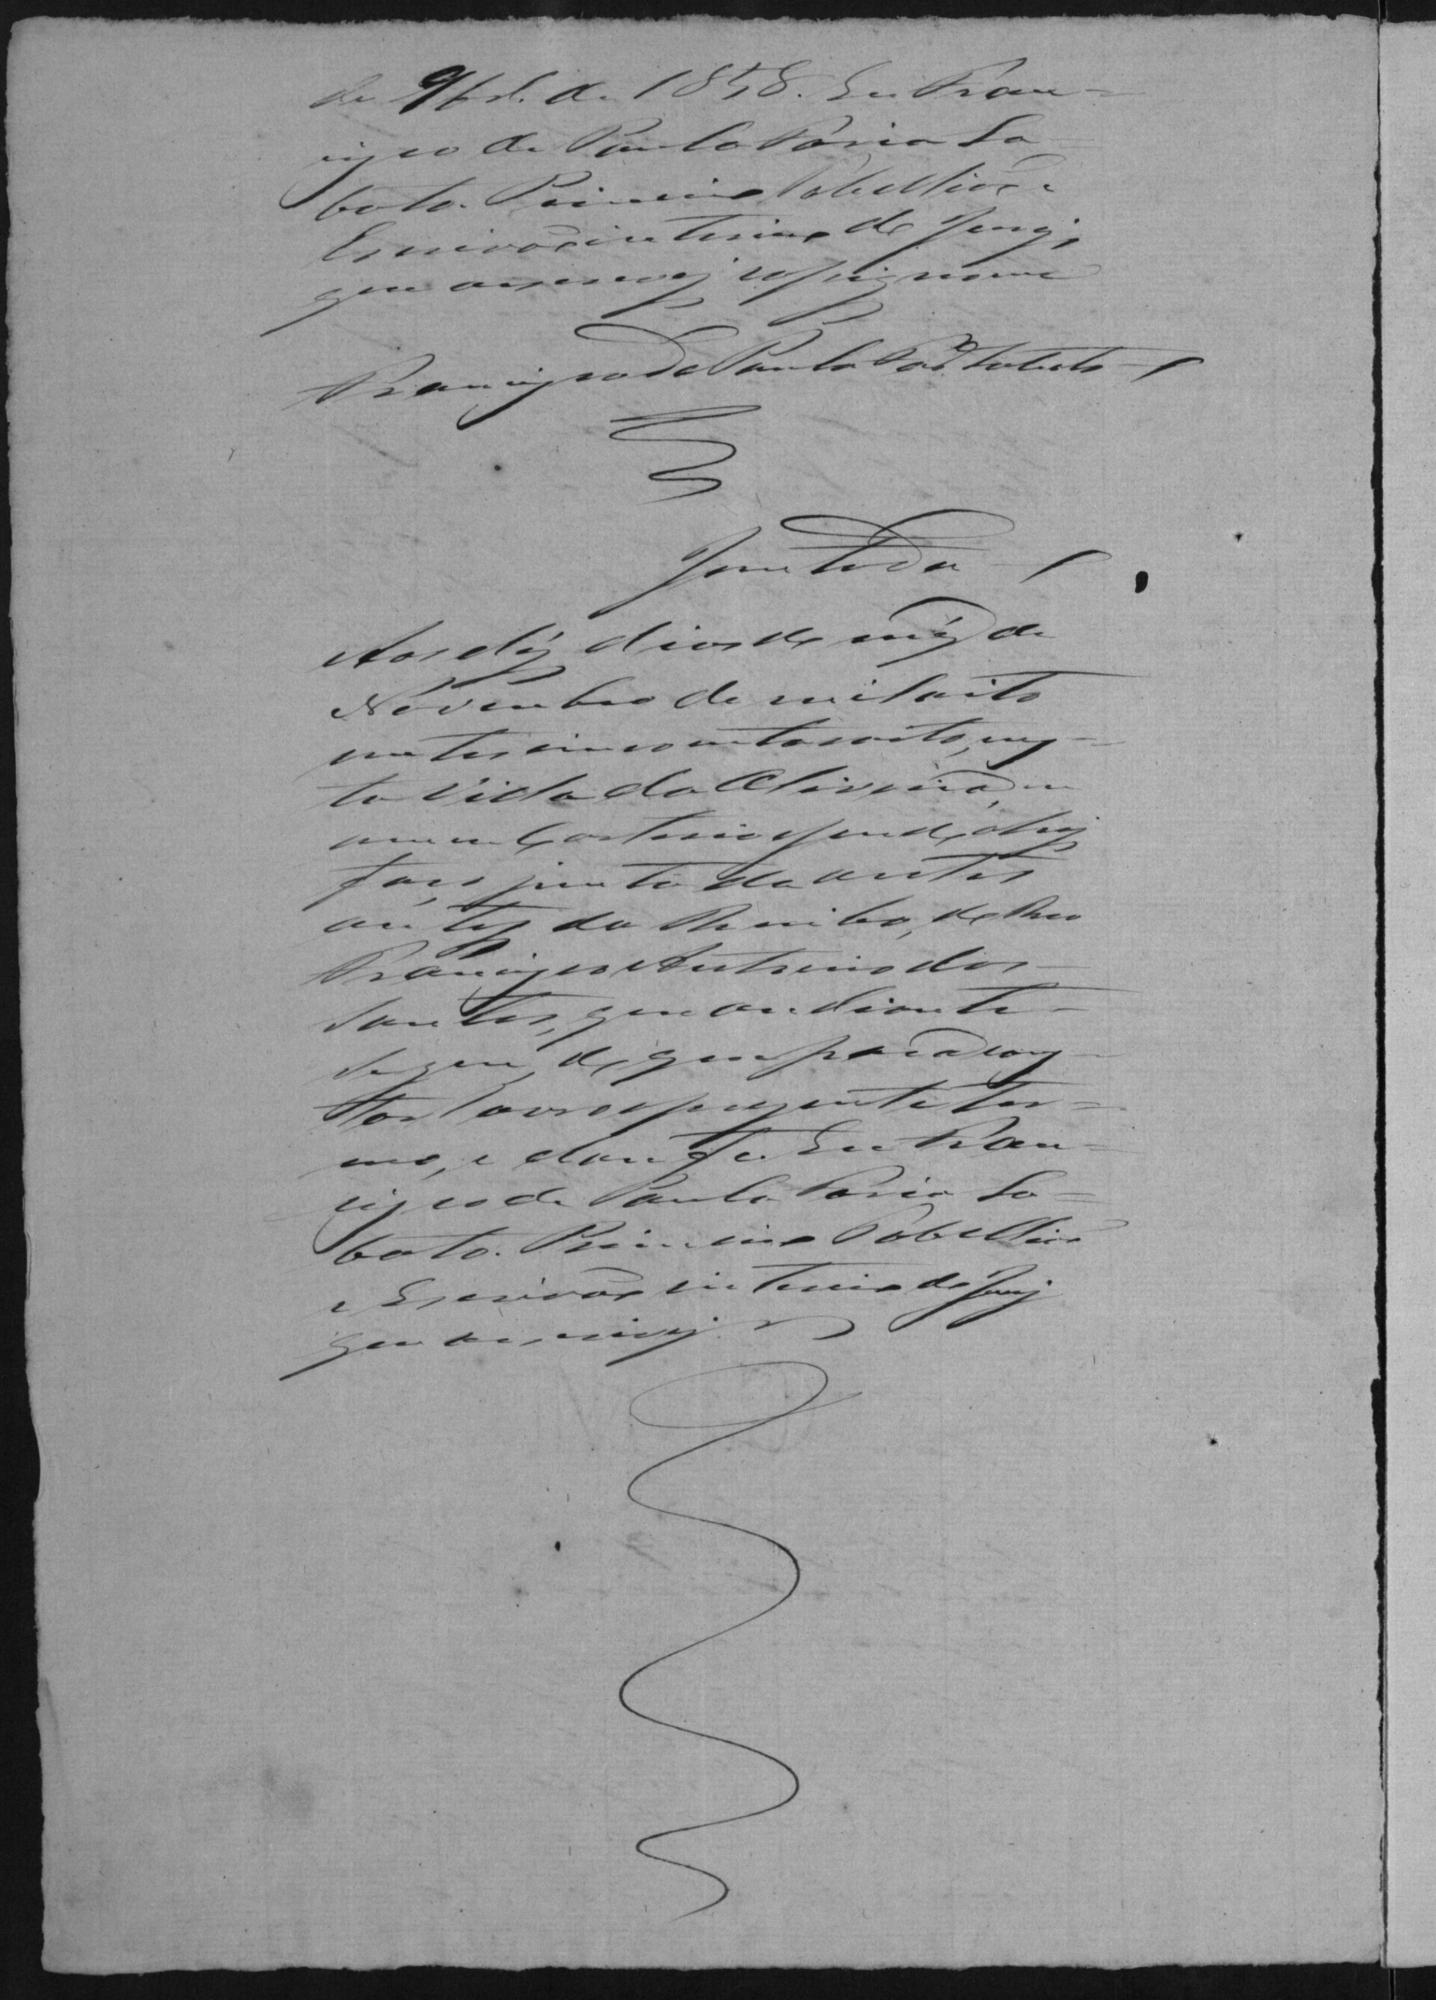 de 9br.º de 1858. Eu Fran-
cisco de Paula Faria Lo-
bato. Primeiro Tabellião e
Escrivão interino do Jury,
que escrevy e assigno
Francisco de Paula Far.ª Lobato
Juntada
Aos dez dias do mez de
Novembro de mil oito
centos cincoenta e oito, nes-
ta Villa da Oliveira, em
meu Cartorio sendo ahy
faço juntada a estes
autos da do Reo
Francisco Antonio dos
Santos, que ao diante
segue, de que para cons-
tar lavro o presente ter-
mo, e dou fé. Eu Fran-
cisco de Paula Faria Lo-
bato. Primeiro Tabellião
e Escrivão interino do Jury
que escrevy.